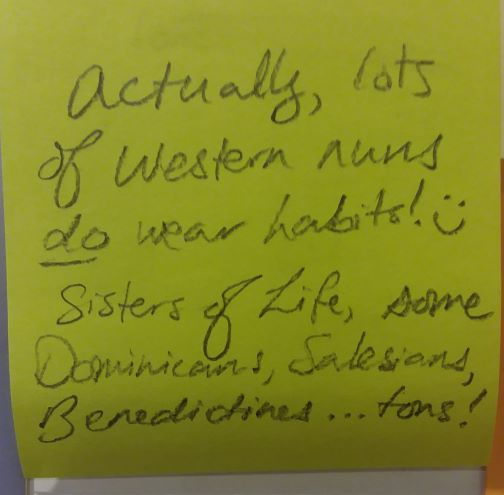 Actually, lots
of Western nuns
do wear habits! :)
Sisters of Life, some
Dominicans, Salesians,
Benedictines... tons!